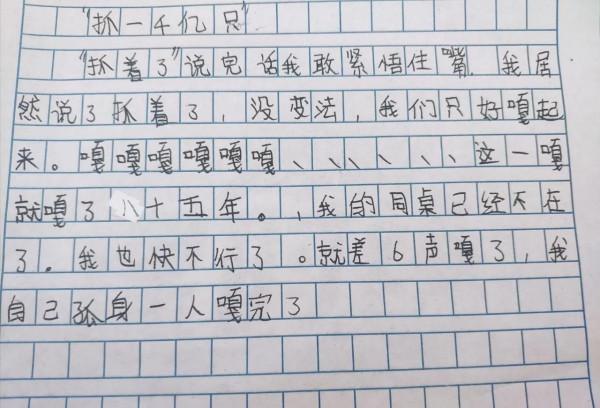 “抓一千亿只”
“抓着了”说完话我敢紧悟住嘴.我居
然说了抓着了，没变法，我们只好嘎起
来。嘎嘎嘎嘎嘎嘎、、、、、、这一嘎
就嘎了八十五年。，我的同桌已经不在
了。我也快不行了。就差6声嘎了，我
自己孤身一人嘎完了